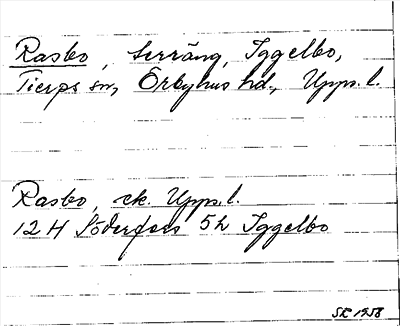 Rasbo, terräng, Iggelbo,
Tierps sn, Örbyhus hd., Upps. l.
Rasbo, ek. Upps. l.
12 H Söderfors 5h Iggelbo
SK 1958